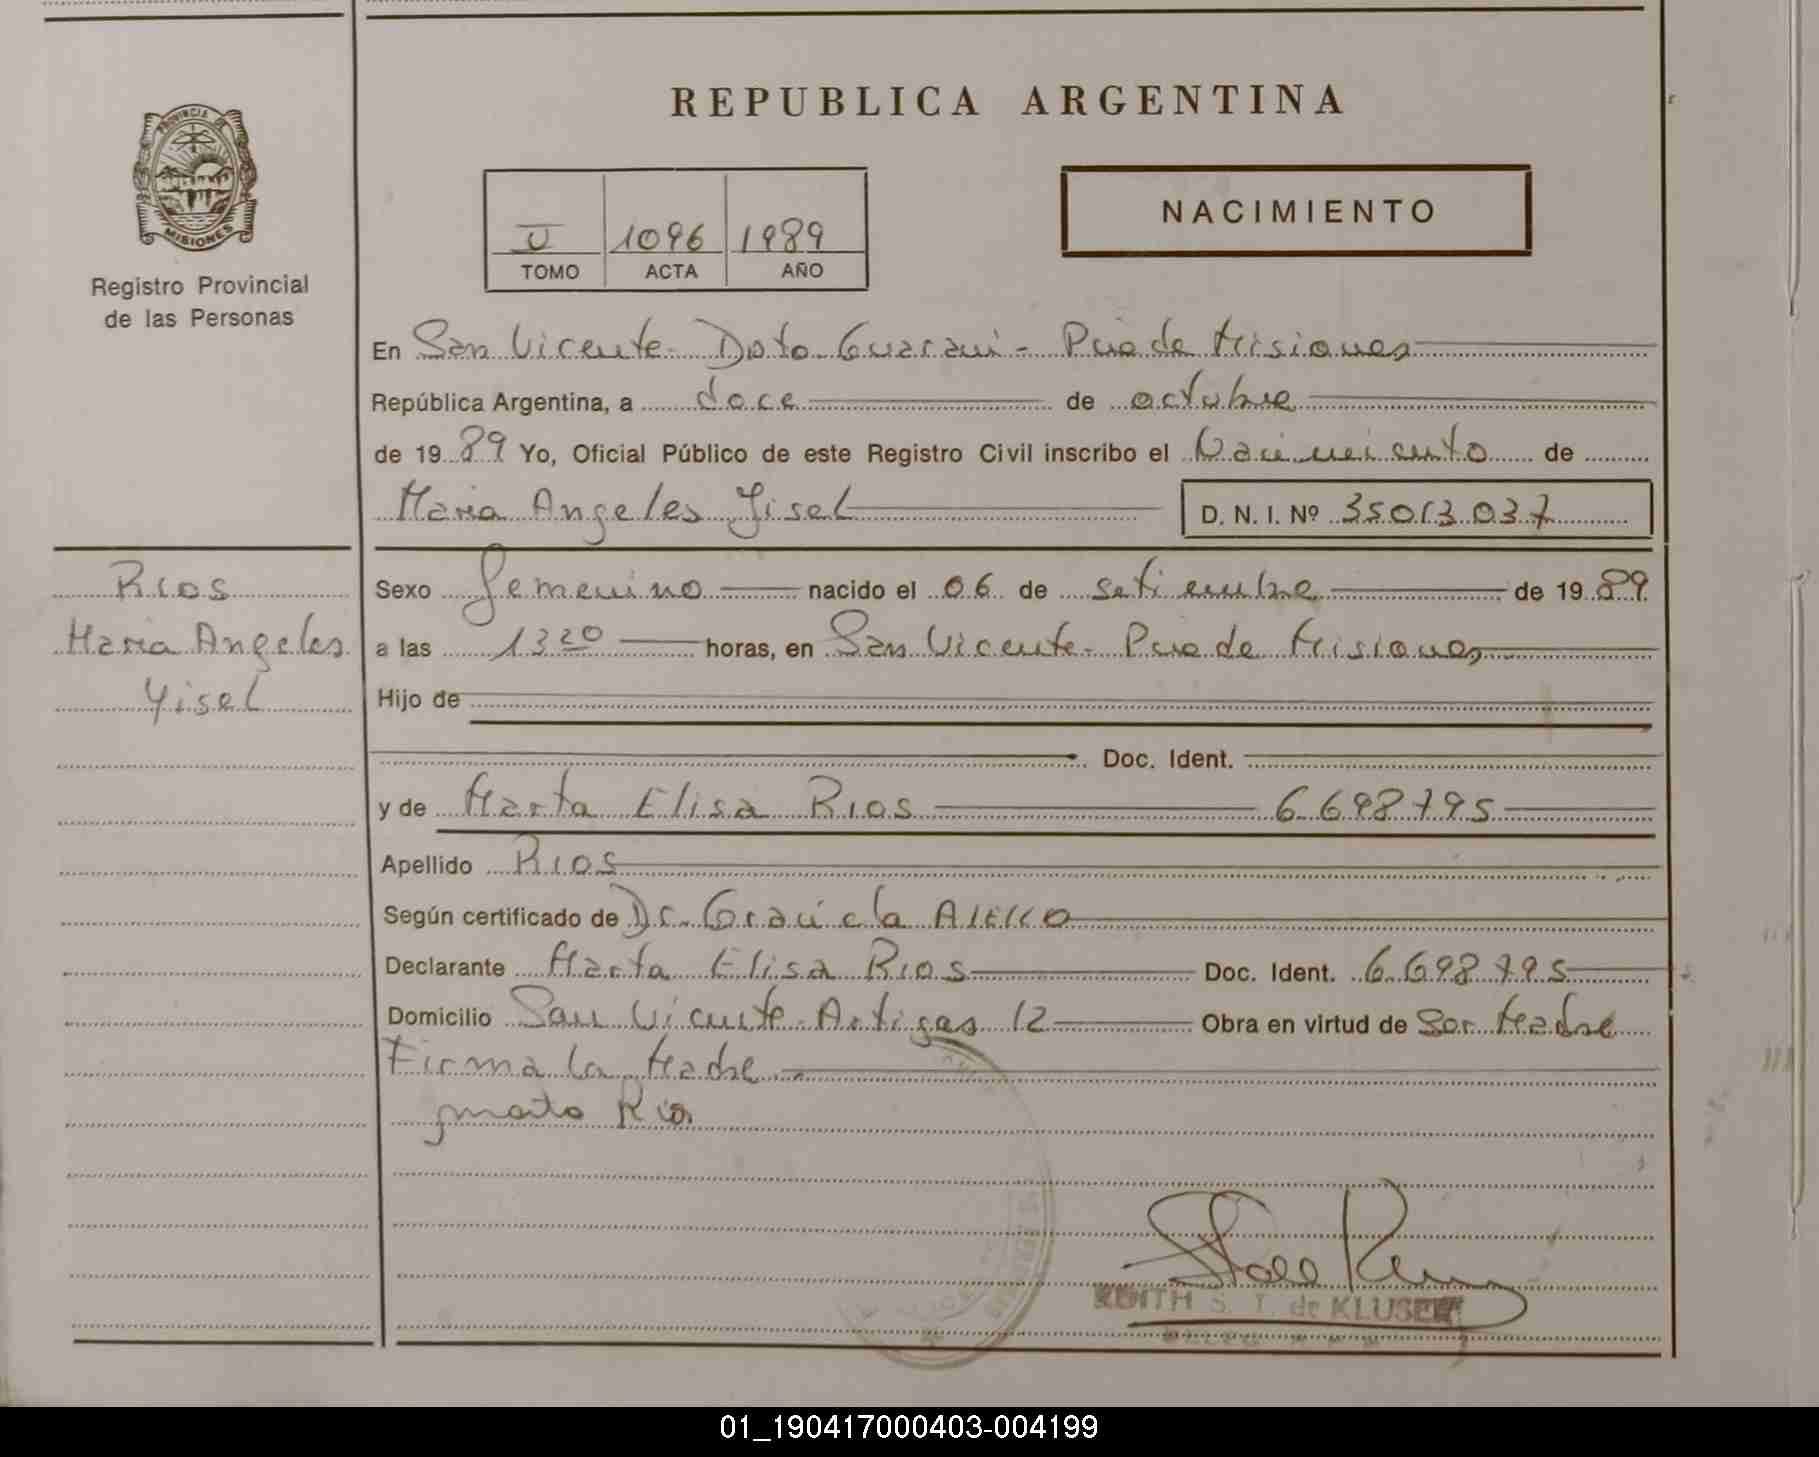 REPUBLICA ARGENTINA
PROVINCIA DE
MISIONES
Registro Provincial
de las Personas
U 1096 1989
TOMO ACTA AÑO
NACIMIENTO
En San Vicente - Dpto Guarani - Pcia de Misiones
República Argentina, a doce de octubre
de 1989 Yo, Oficial Público de este Registro Civil inscribo el Nacimiento de
Maria Angeles Yisel D. N. I. Nº 35013037
Rios
Maria Angeles
Yisel
Sexo femenino nacido el 06 de setiembre de 1989
a las 13 20 horas, en San Vicente - Pcia de Misiones
Hijo de
Doc. Ident.
y de Marta Elisa Rios 6698795
Apellido Rios
Según certificado de Dr. Graciela
Declarante Marta Elisa Rios Doc. Ident. 6698795
Domicilio San Vicente - Artigas 12 Obra en virtud de Ser Madre
Firma la Madre
S. T. de KLUSER
01_190417000403-004199